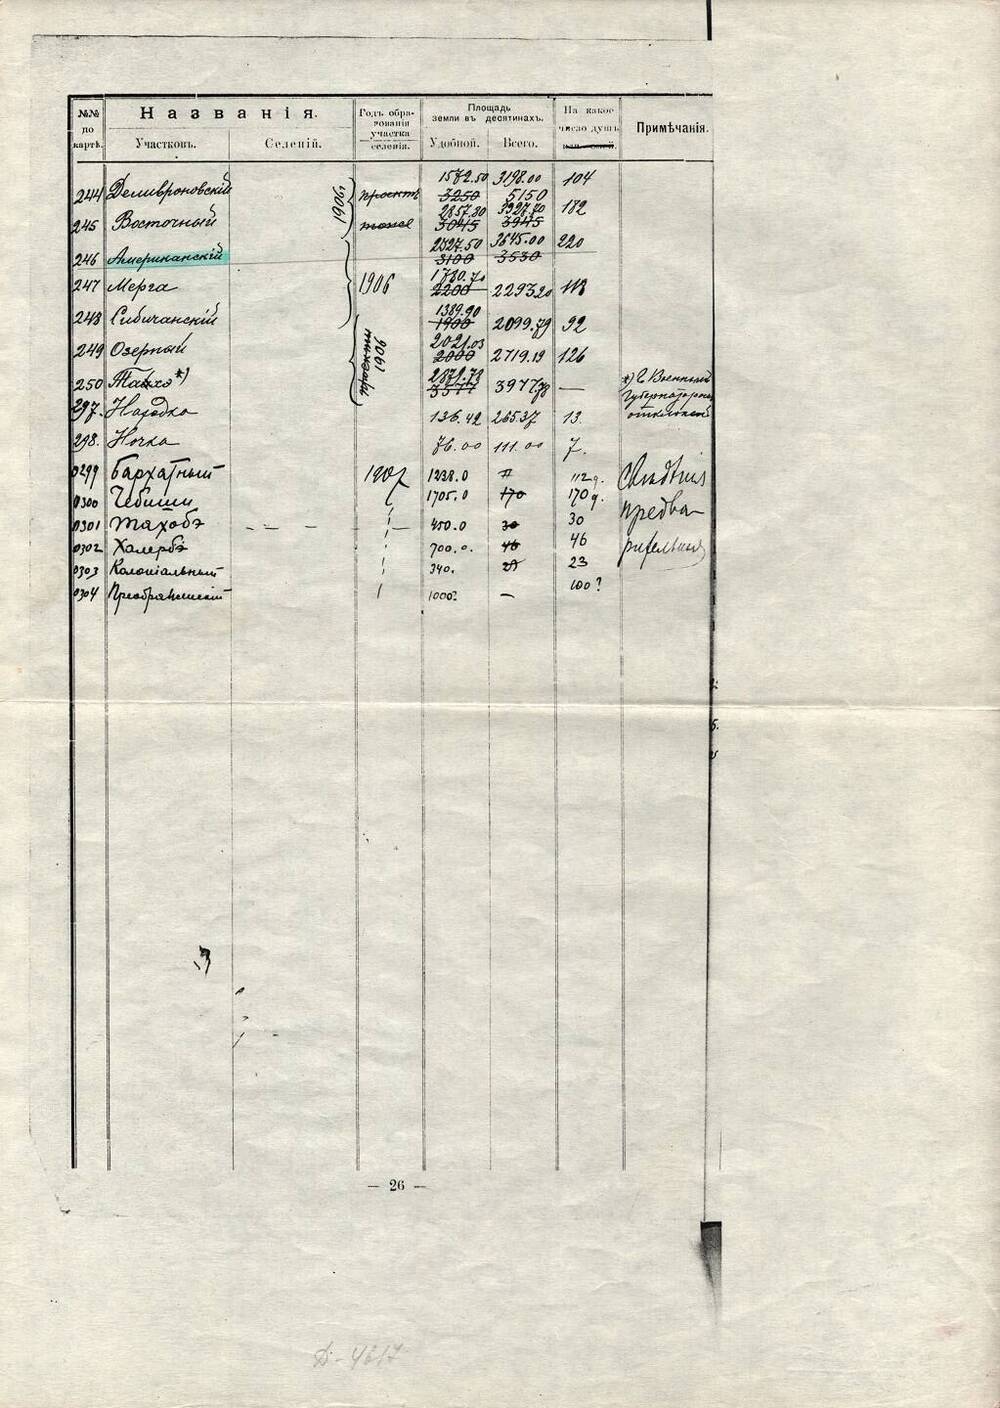 №№ по картѣ.
Названія.
Участковъ.
Селеній.
Годъ образованія участка селенія.
Площадь земли въ десятинахъ.
Удобной.
Всего.
На какое число душъ
Примѣчанія.
1906г.
244 Деливроновскій проектъ 1572.50 3250 3198.00 5150 104
245 Восточный тоже 2857.80 3045 3927.70 3945 182
246 Американскій 2527.50 3100 3645.00 3530 220
247 Мерга 1906 1780.70 2200 2293.20 118
248 Сибичанскій 1389.90 1900 2099.79 92
проекты 1906
249 Озерный 2021.03 2000 2719.19 126
250 *) 2871.78 3577 3977.78 —
*) Г. Военный Губернаторъ отклонилъ
297. 136.42 265.37 13.
298. Ночка 76.00 111.00 7.
0299 Бархатный 1907 1238.0 112д.
0300 Чебиши 1705.0 170 170д.
0301 Тахобэ — — — 450.0 30 30
0302 Халербэ 700.0. 46 46
0303 Колоніальный 340. 23
0304 Преображенскій 1000? — 100?
Свѣдѣнія предварительныя
— 26 —
Д-4617